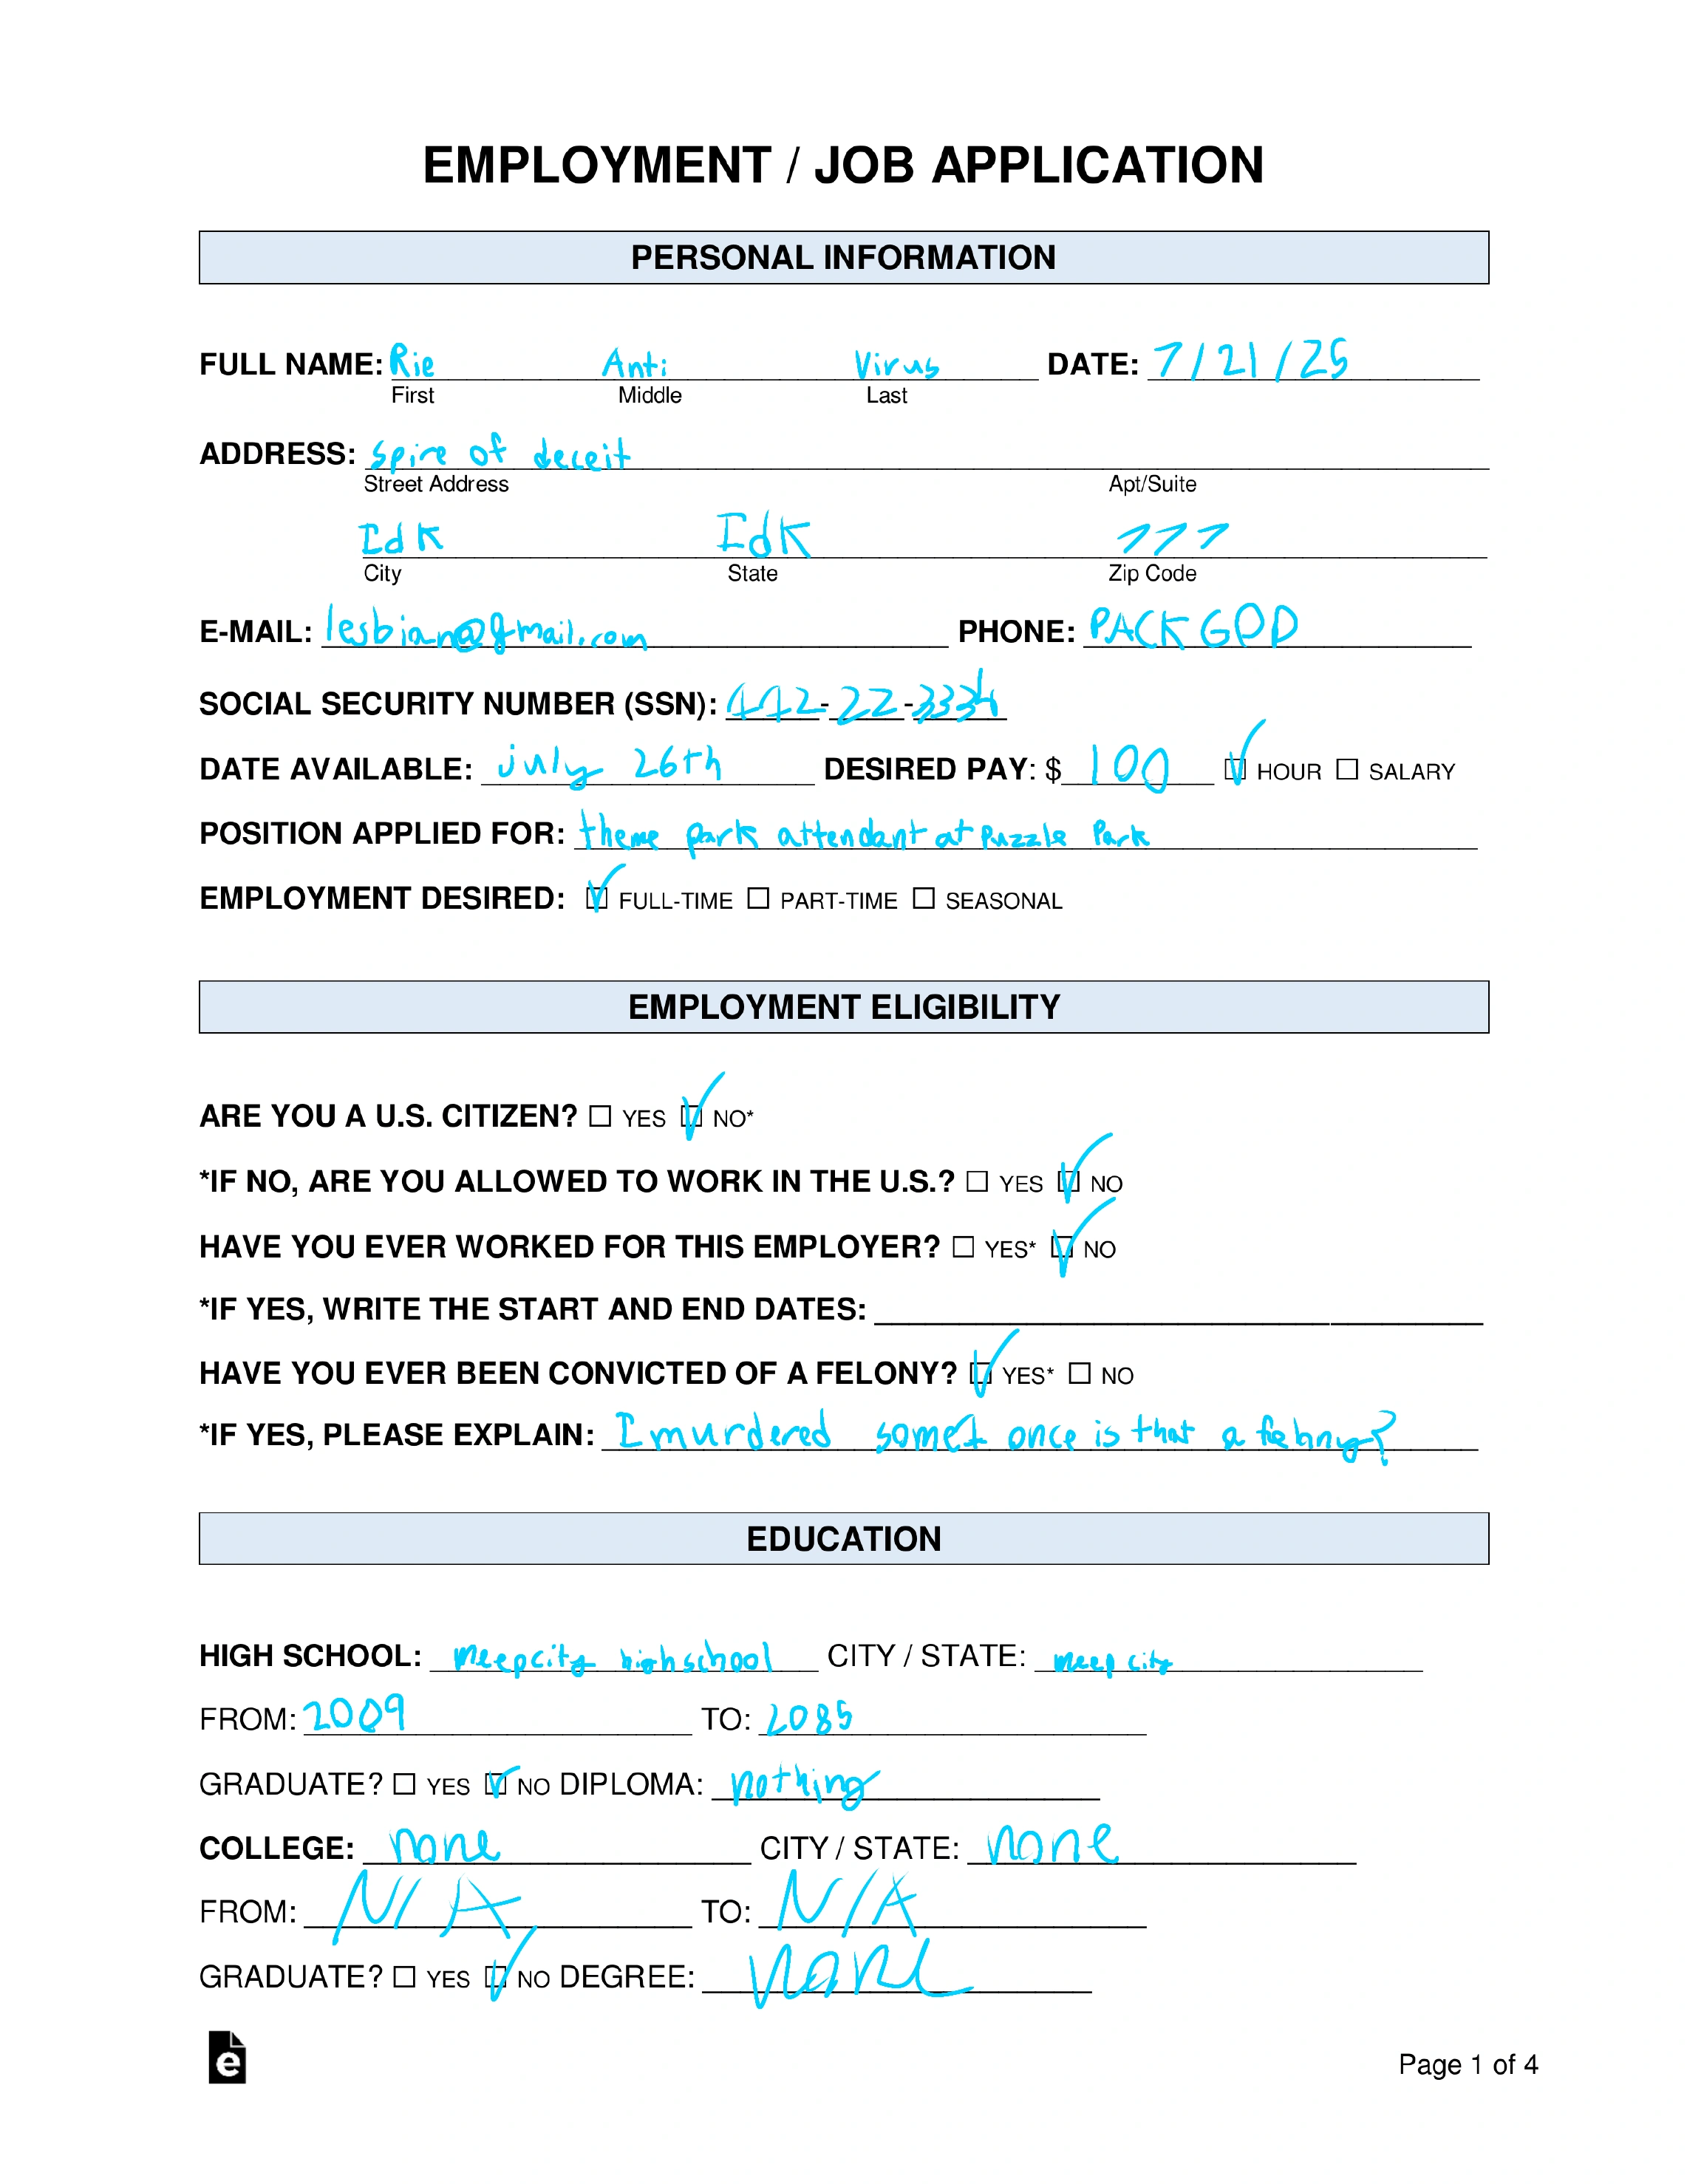 EMPLOYMENT / JOB APPLICATION
PERSONAL INFORMATION
FULL NAME: Rie Anti Virus DATE: 7/21/25
First Middle Last
ADDRESS: spire of deceit
Street Address Apt/Suite
Idk Idk 777
City State Zip Code
E-MAIL: lesbian@gmail.com PHONE: PACKGOD
SOCIAL SECURITY NUMBER (SSN): 112-22-3334
DATE AVAILABLE: july 26th DESIRED PAY: $ 100 ☑ HOUR ☐ SALARY
POSITION APPLIED FOR: theme park attendant at Puzzle Park
EMPLOYMENT DESIRED: ☑ FULL-TIME ☐ PART-TIME ☐ SEASONAL
EMPLOYMENT ELIGIBILITY
ARE YOU A U.S. CITIZEN? ☐ YES ☑ NO*
*IF NO, ARE YOU ALLOWED TO WORK IN THE U.S.? ☐ YES ☑ NO
HAVE YOU EVER WORKED FOR THIS EMPLOYER? ☐ YES* ☑ NO
*IF YES, WRITE THE START AND END DATES:
HAVE YOU EVER BEEN CONVICTED OF A FELONY? ☑ YES* ☐ NO
*IF YES, PLEASE EXPLAIN: I murdered once is that a ?
EDUCATION
HIGH SCHOOL: meepcity highschool CITY / STATE: meep city
FROM: 2009 TO: 2085
GRADUATE? ☐ YES ☑ NO DIPLOMA: nothing
COLLEGE: none CITY / STATE: none
FROM: N/A TO: N/A
GRADUATE? ☐ YES ☑ NO DEGREE: none
e
Page 1 of 4